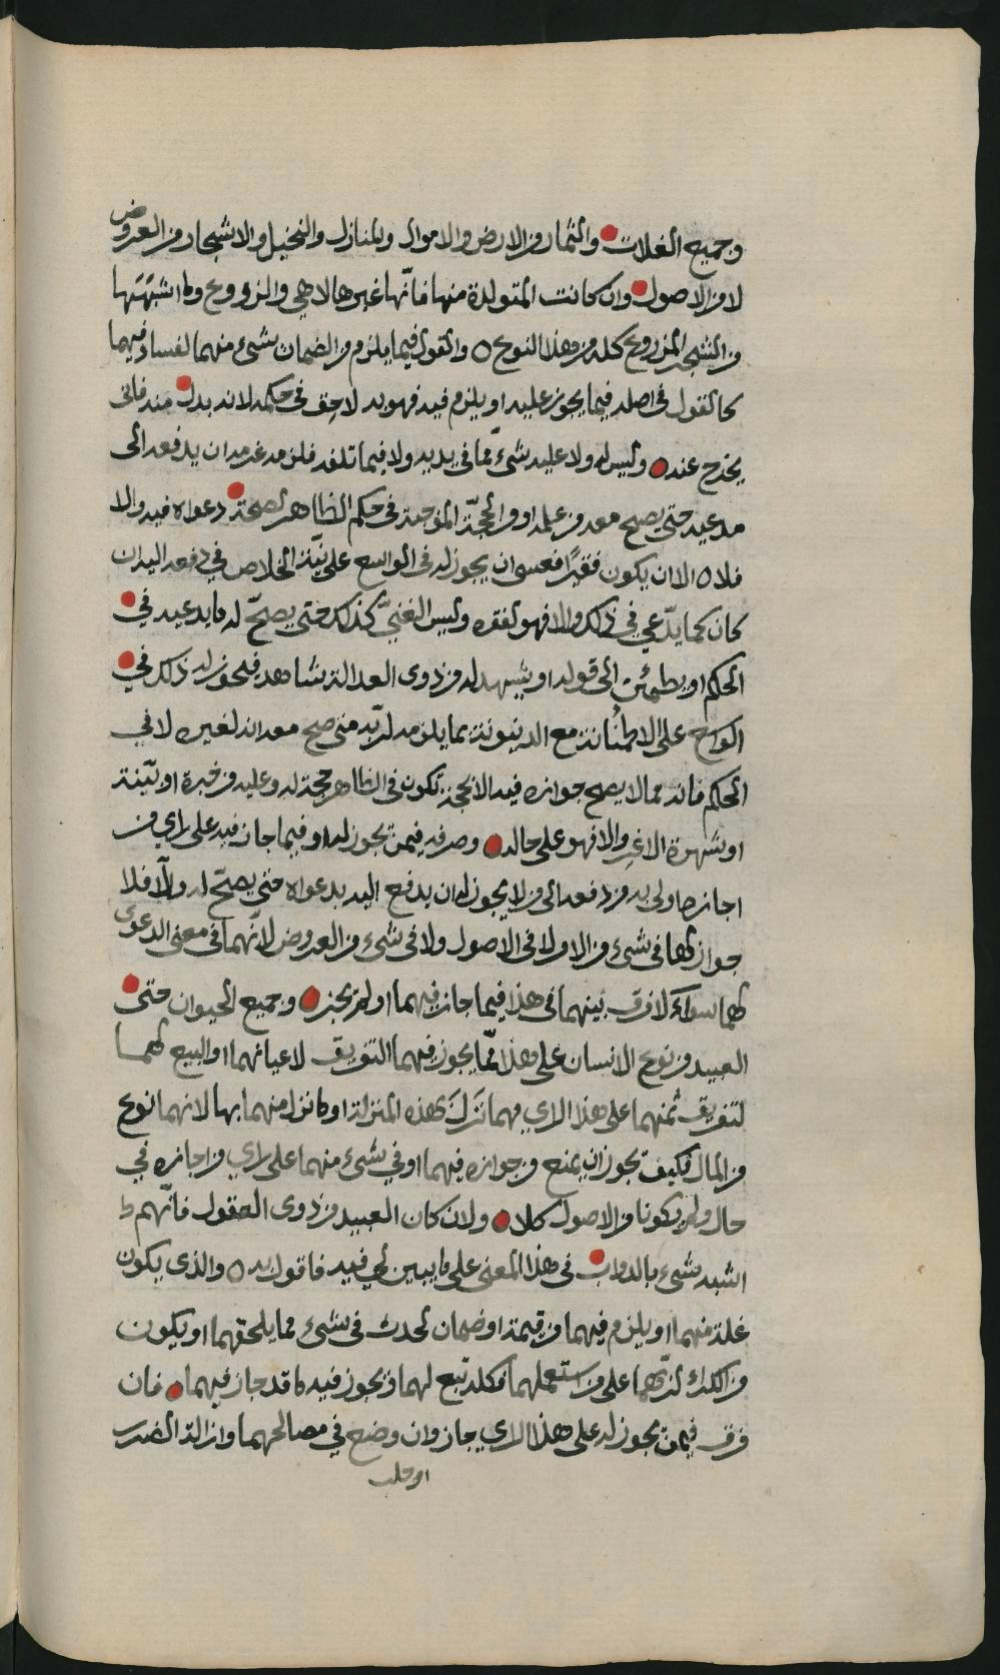 وجميع الغلات والثمار من الارض والاموال والمنازل والنخيل والاشجار من العروض
لا من الاصول وان كانت المتولدة منها فانّها غيرها لا هي والزروع وما اشبهَهَا
من الشجر المزروع كله من هذا النوع ه والقول فيما يلزم من الضمان بشيء منهما لفساد فيهما
كالقول في اصله فيما يجوز عليه او يلزم فيه فهو به لاحِق في حكمه لانه بدل منه فانى
يخرج عنه وليس له ولا عليه شيء ممّا في يديه ولا فيما تلفه فلزمه غرمه ان يدفعه الى
مدعيه حتى يصح معه من علمه او من الحجّة الموجبة في حكم الظاهر لصحة دعواه فيه والا
فلا ه الا ان يكون فقيرًا فعسى ان يجوز له في الواسع على نيّة الخلاص في دفعه اليه ان
كان كما يدّعي في ذلك والا فهو لفقره وليس الغنيّ كذلك حتى يصحّ له ما يدعيه في
الحكم او يطمئن الى قوله او يشهد له من ذوى العدالة شاهد فيجوز له ذلك في
الواسع على الاطمئنانة مع الدينونة بما يلزمه لربّه متى صح معه انه لغيره لا في
الحكم فانه مما لا يصح جوازه فيه الا بحجة تكون في الظاهر حجة له وعليه من خبرة او بيّنة
او شهرة الا غير والا فهو على حاله وصرفه فيمن يجوز له او فيما جاز فيه على راي من
اجازه اولى به من دفعه الى من لا يجوز له ان يدفع اليه بدعواه حتى يصحّ له والّا فلا
جواز لها في شيء من الاولا في الاصول ولا في شيء من العروض لانّهما في معنى الدعوى
لهما سوآء لا فرق بينهما في هذا فيما جاز فيهما او لم يجز وجميع الحيوان حتى
العبيد من نوع الانسان على هذا ممّا يجوز فيهما التفريق لاعيانهما او البيع لهما
لتفريق ثمنهما على هذا الراي مهما نَزَلَ بهذه المنزلة او كانزل منهما بها لانهما نوع
من المال فكيف يجوز ان يمنع من جوازه فيهما او في شيء منهما على راي من اجازه في
حال ولم يكونا من الاصول كلا ولان كان العبيد من ذوى العقول فانّهم
اشبه شيء بالدواب في هذا المعنى على ما يبين لي فيه فاقول به ه والذى يكون
غلة منهما او يلزم فيهما من قيمة او ضمان لحدث في شيء مما يلحقهما او يكون
من الكراء لربّهما على من استعملهما فكله تبع لهما فيجوز فيه ما قد جاز فيهما فان
فرق فيمن يجوز له على هذا الراي جاز وان وضع في مصالحهما وازالة الضرر